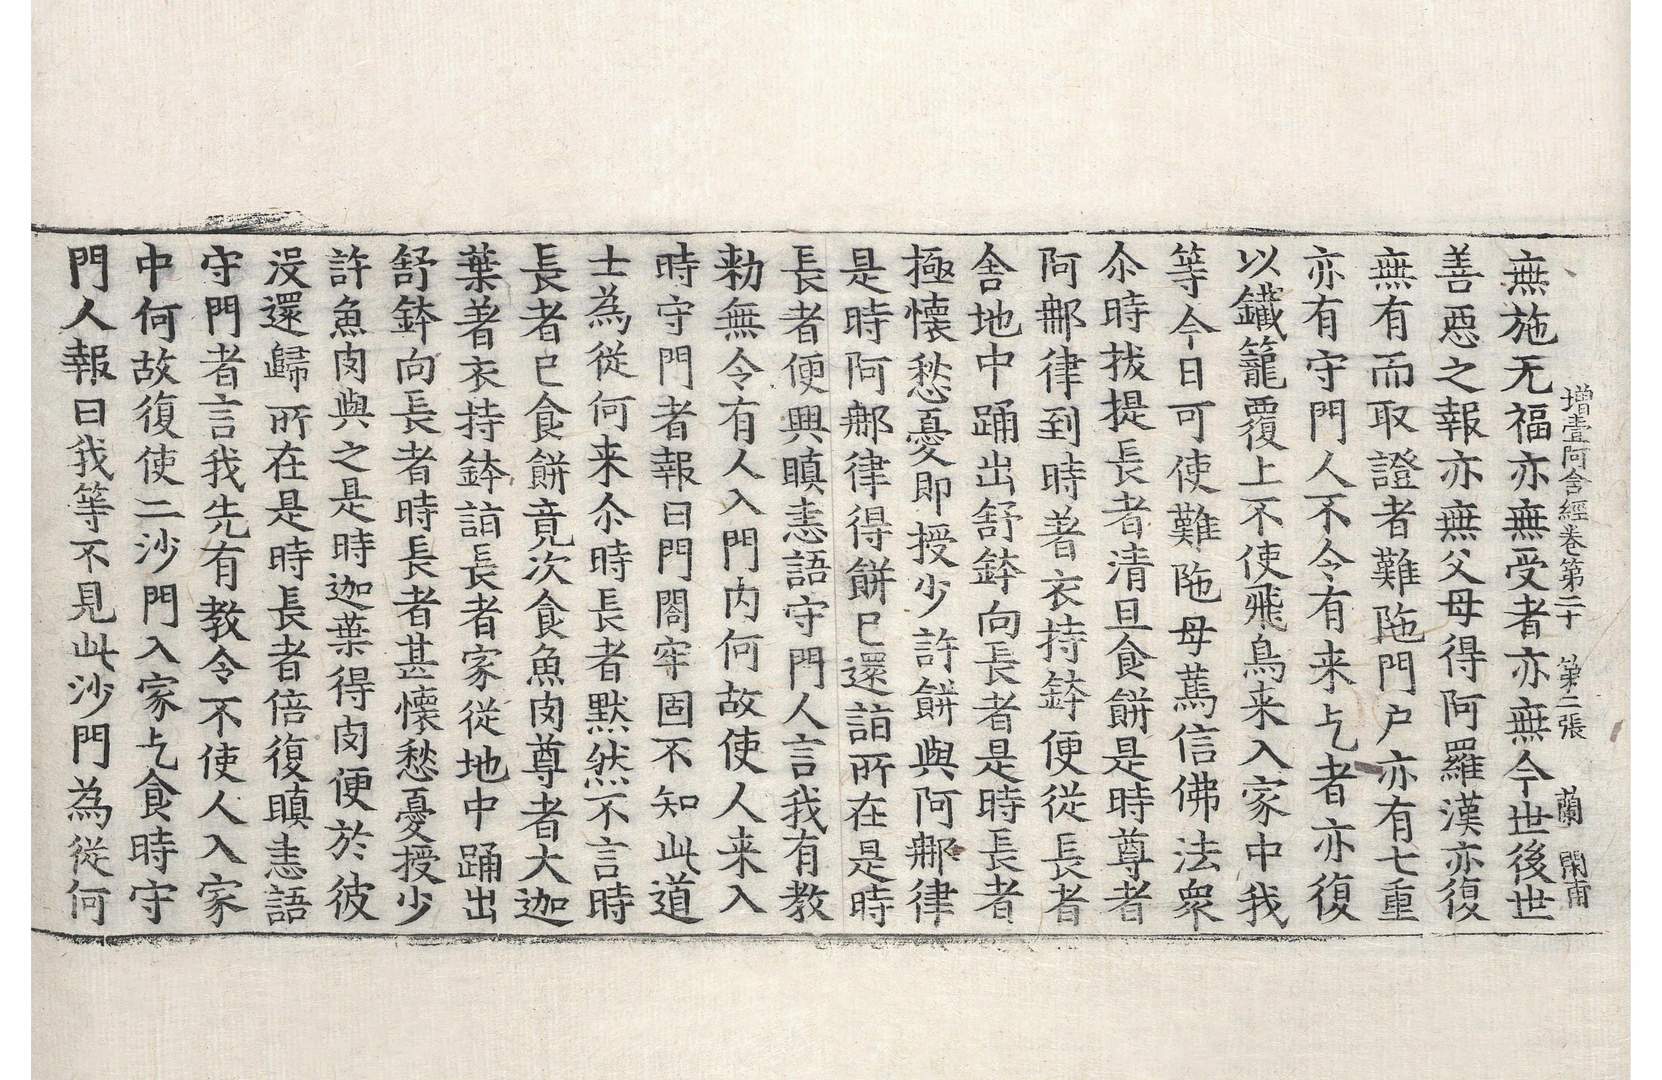 增壹阿含經卷第二十 第二張 蘭 開甫
無施无福亦無受者亦無今世後世
善惡之報亦無父母得阿羅漢亦復
無有而取證者難陁門户亦有七重
亦有守門人不令有来乞者亦復
以鐵籠覆上不使飛鳥来入家中我
等今日可使難陁母蔫信佛法衆
尒時拔提長者清旦食餅是時尊者
阿郍律到時著衣持鉢便從長者
舍地中踊出舒鉢向長者是時長者
極懷愁憂即授少許餅與阿郍律
是時阿郍律得餅已還詣所在是時
長者便興瞋恚語守門人言我有教
勑無令有人入門内何故使人来入
時守門者報曰門閤牢固不知此道
士為從何来尒時長者默然不言時
長者已食餅竟次食魚肉尊者大迦
葉著衣持鉢詣長者家從地中踊出
舒鉢向長者時長者甚懷愁憂授少
許魚肉與之是時迦葉得肉便於彼
没還歸所在是時長者倍復瞋恚語
守門者言我先有教令不使人入家
中何故復使二沙門入家乞食時守
門人報曰我等不見此沙門為從何